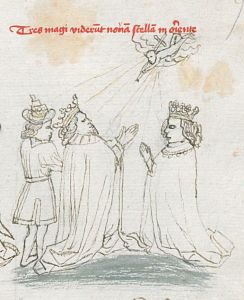 Tres magi viderūt novā stellā in oriente